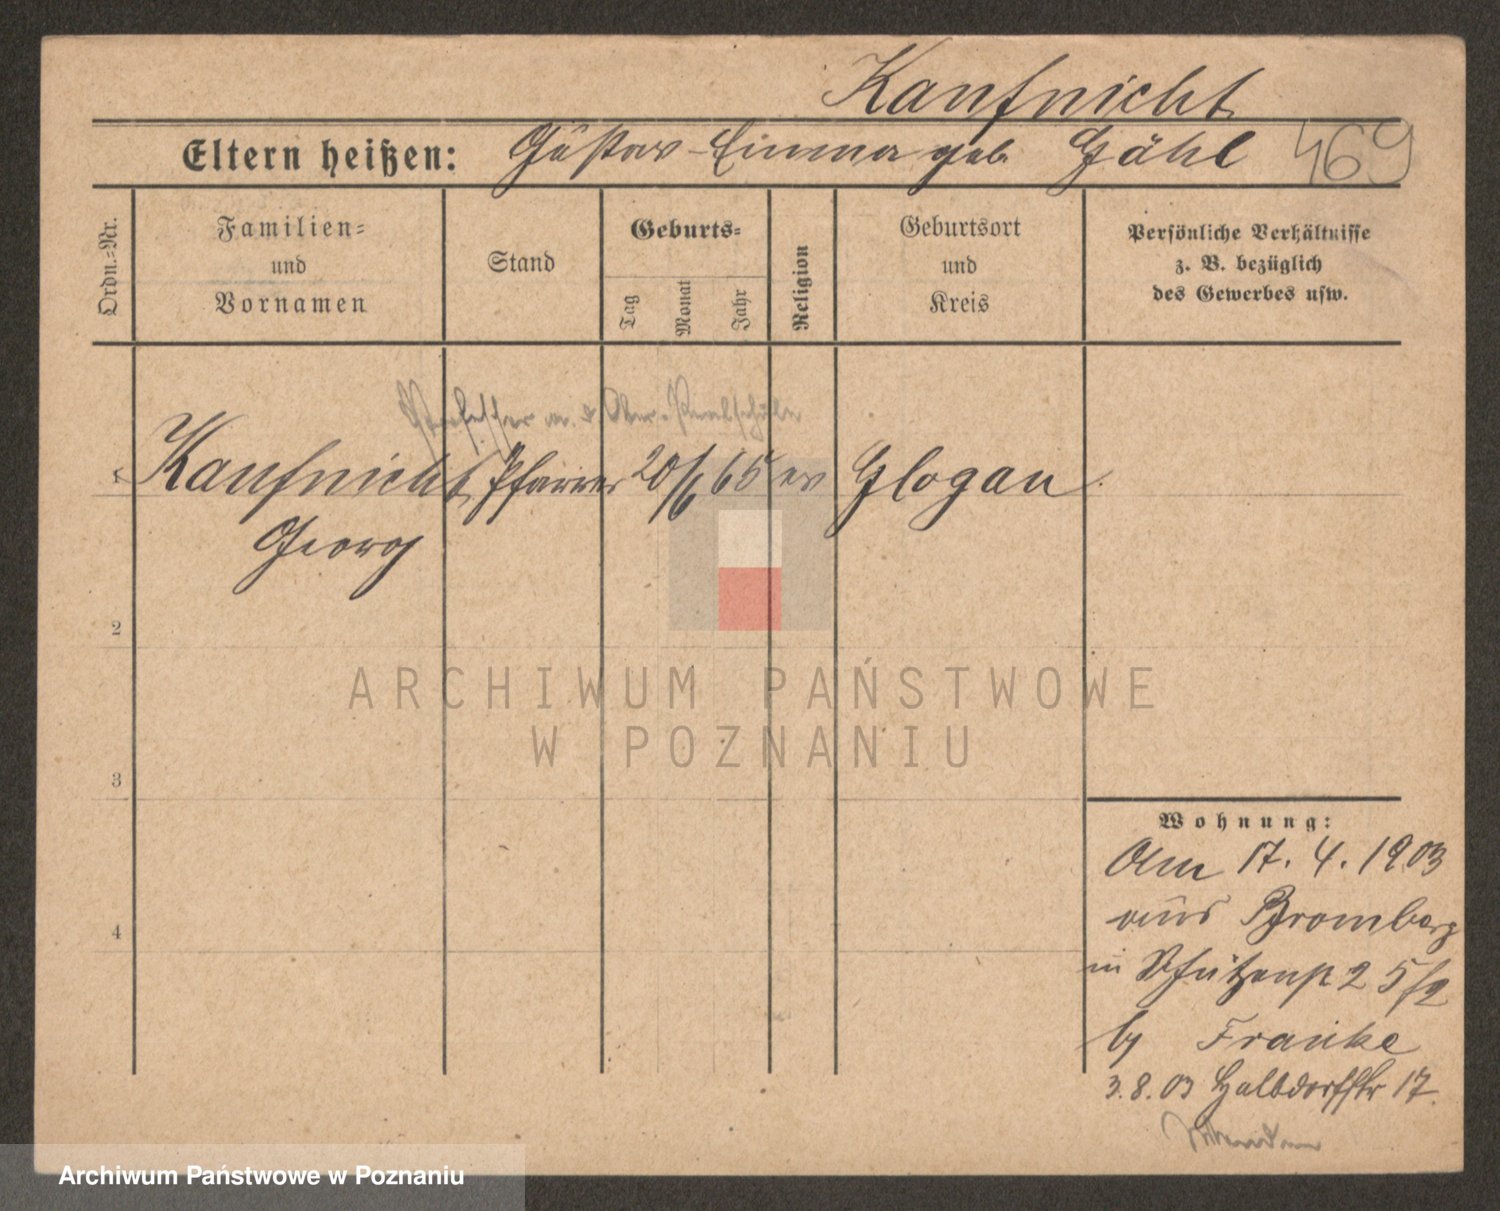 Kaufnicht
Eltern heißen: Gustav - Emma geb. Gähl
469
Ordn.-Nr.
Familien-
und
Vornamen
Stand
Geburts-
Tag
Monat
Jahr
Religion
Geburtsort
und
Kreis
Persönliche Verhältnisse
z. B. bezüglich
des Gewerbes usw.
Professor a. d. Ober-Realschule
Kaufnicht Pfarrer 20/6 65 ev Glogau
Georg
2
3
4
Wohnung:
Am 17. 4. 1903
aus Bromberg
in Schützenstr 25/2
by Franke
3. 8. 03 Halbdorfstr 17.
ARCHIWUM PAŃSTWOWE
W POZNANIU
Archiwum Państwowe w Poznaniu